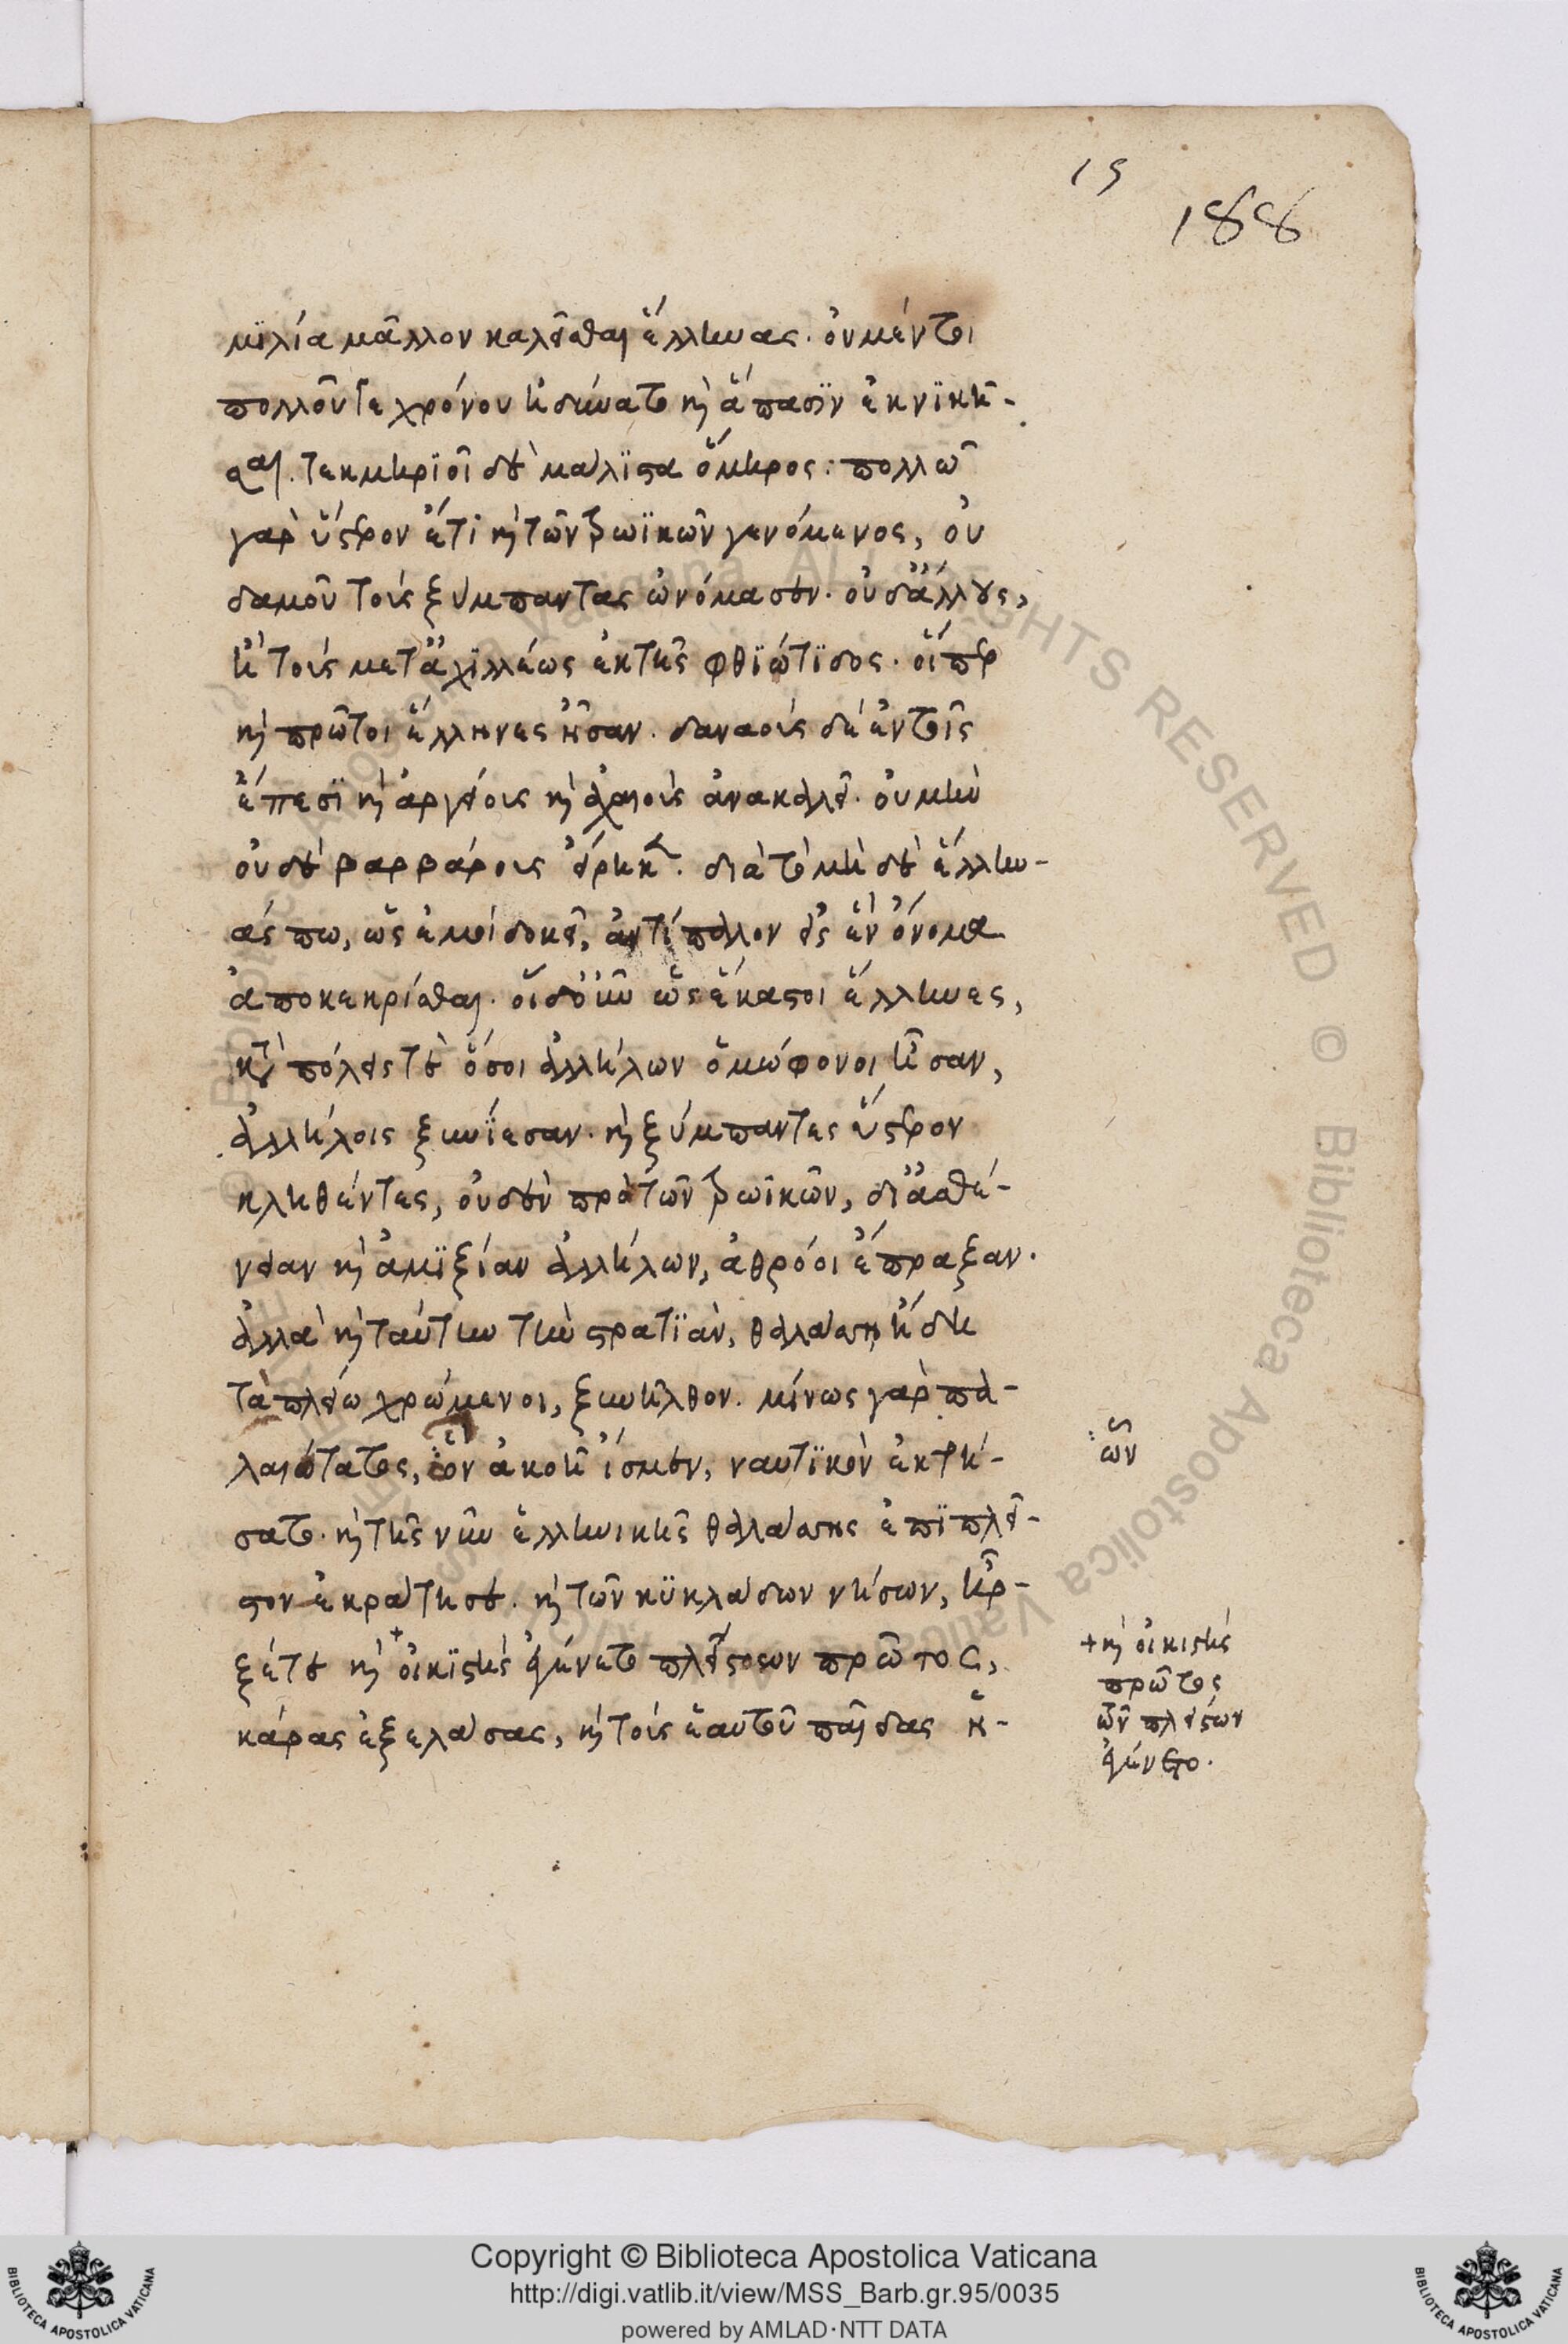 15
188
μϊλία μᾶλλον καλεῖσθαι ἕλληνας. οὐ μέντοι
πολλοῦ γε χρόνου ἠδύνατο καὶ ἅπασϊν ἐκνϊκῆ-
σαι. τεκμηρϊοῖ δὲ μάλϊστα ὅμηρος: πολλῶ
γὰρ ὕστερον ἔτι καὶ τῶν τρωϊκῶν γενόμενος, οὐ
δαμοῦ τοὺς ξύμπαντας ὠνόμασεν. οὐδ' ἄλλους,
ἢ τοὺς μετ' ἀχϊλλέως ἐκ τῆς φθϊώτϊδος. οἵπερ
καὶ πρῶτοι ἕλληνες ἦσαν. δαναοὺς δὲ ἐν τοῖς
ἔπεσϊ καὶ ἀργείους καὶ ἀχαιοὺς ἀνακαλεῖ. οὐ μὴν
οὐδὲ βαρβάρους εἴρηκε. διὰ τὸ μὴ δὲ ἕλλην-
άς πω, ὡς ἐμοὶ δοκεῖ, ἀντίπαλον εἰς ἓν ὄνομα
ἀποκεκρίσθαι. οἱ δ' οὖν ὡς ἕκαστοι ἕλληνες,
κατὰ πόλεις τὲ ὅσοι ἀλλήλων ὁμώφονοι ἦσαν,
ἀλλήλοις ξυνΐεσαν. καὶ ξύμπαντες ὕστερον
κληθέντες, οὐδὲν πρὸ τῶν τρωϊκῶν, δι' ἀσθέ-
νειαν καὶ ἀμϊξίαν ἀλλήλων, ἀθρόοι ἔπραξαν.
ἀλλὰ καὶ ταύτην τὴν στρατϊὰν, θαλάσση ἤδη
τὰ πλείω χρώμενοι, ξυνῆλθον. μίνως γὰρ πα-
λαιότατος, ὃν ἀκοῆ ἴσμεν, ναυτϊκὸν ἐκτή-
σατο. καὶ τῆς νῦν ἑλληνικῆς θαλάσσης ἐπϊπλεῖ-
στον ἐκράτησε. καὶ τῶν κϋκλάδων νήσων, ἦρ-
ξέ τε καὶ + οἰκϊστὴς ἐγένετο πλείστων πρῶτος,
κάρας ἐξελάσας, καὶ τοὺς ἑαυτοῦ παῖδας ἡ-
: ὧν
+ καὶ οἰκιστὴς
πρῶτος
τῶν πλείστων
ἐγένετο.
Copyright © Biblioteca Apostolica Vaticana
http://digi.vatlib.it/view/MSS_Barb.gr.95/0035
powered by AMLAD·NTT DATA